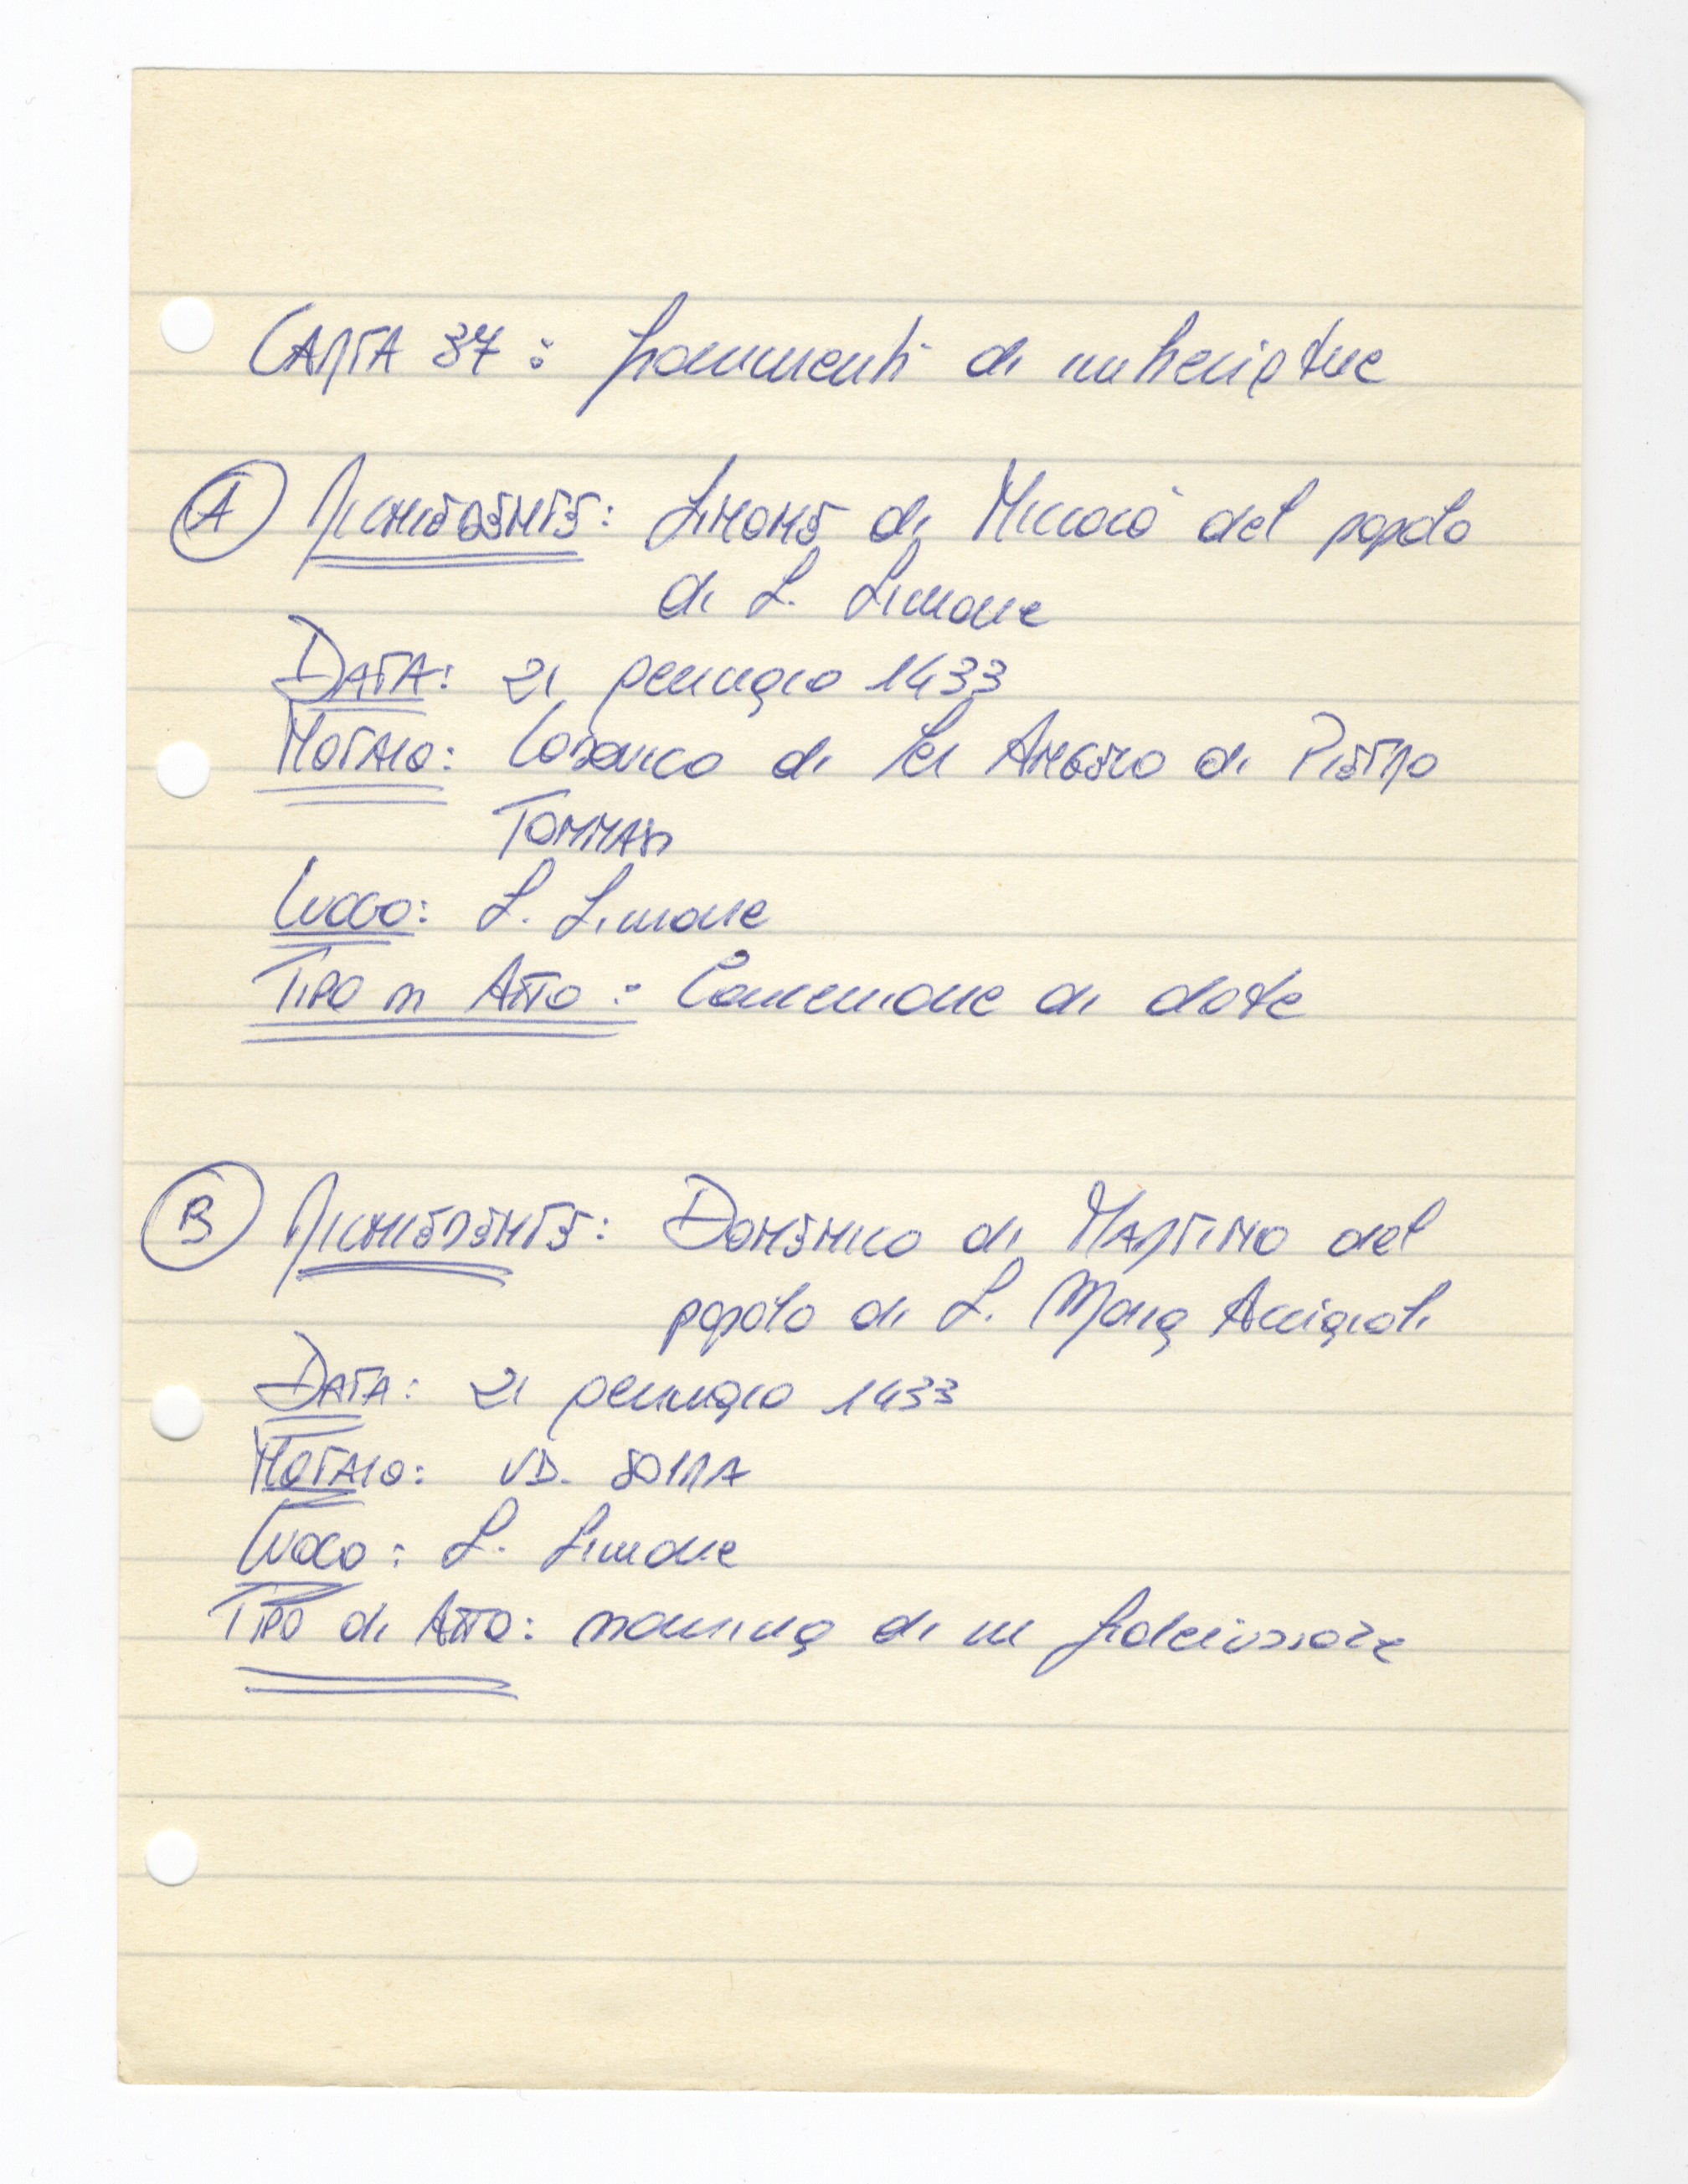 CARTA 37: frammenti di imbreviature
A RICHIEDENTE: SIMONE di Niccolò del popolo
di S. Simone
DATA: 21 gennaio 1433
NOTAIO: LODOVICO di Ser ANGELO di PIETRO
TOMMASI
LUOGO: S. Simone
TIPO DI ATTO: Concessione di dote
B RICHIEDENTE: DOMENICO di MARTINO del
popolo di S. Maria Acciaioli
DATA: 21 gennaio 1433
NOTAIO: VD. SOPRA
LUOGO: S. Simone
TIPO di ATTO: nomina di un fideiussore